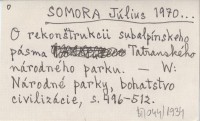 SOMORA Július 1970...
O rekonštrukcii subalpínskeho
pásma Tatranského
národného parku. — W:
Národné parky, bohatstvo
civilizácie, s. 496-512.